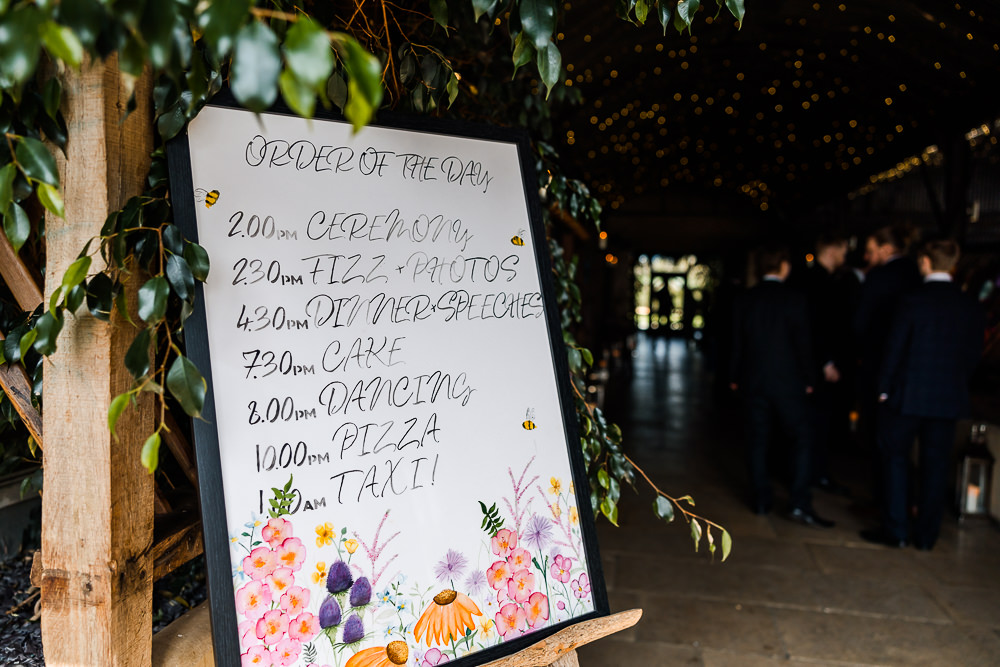 ORDER OF THE DAY
2.00PM CEREMONY
2.30PM FIZZ + PHOTOS
4.30PM DINNER + SPEECHES
7.30PM CAKE
8.00PM DANCING
10.00PM PIZZA
AM TAXI!